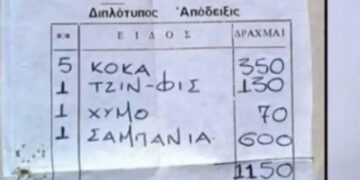 Διπλότυπος Ἀπόδειξις
Π/Π ΕΙΔΟΣ ΔΡΑΧΜΑΙ
5 ΚΟΚΑ 350
1 ΤΖΙΝ-ΦΙΣ 130
1 ΧΥΜΟ 70
1 ΣΑΜΠΑΝΙΑ 600
1150